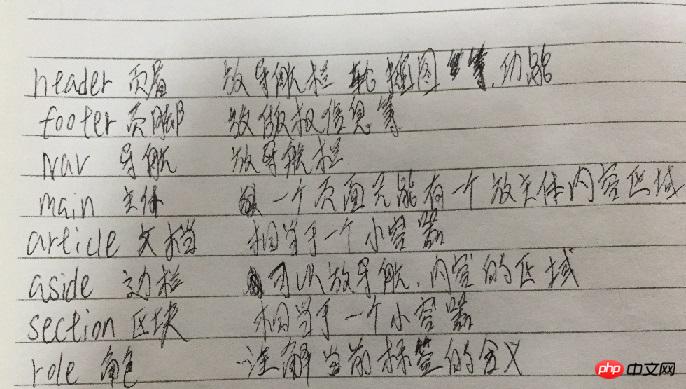 header 页眉 放导航栏 轮播图 等功能
footer 页脚 放版权信息等
nav 导航 放导航栏
main 主体 一个页面只能有一个放主体内容区域
article 文档 相当于一个小容器
aside 边栏 可以放导航.内容的区域
section 区块 相当于一个小容器
role 角色 注解当前标签的含义
php 中文网